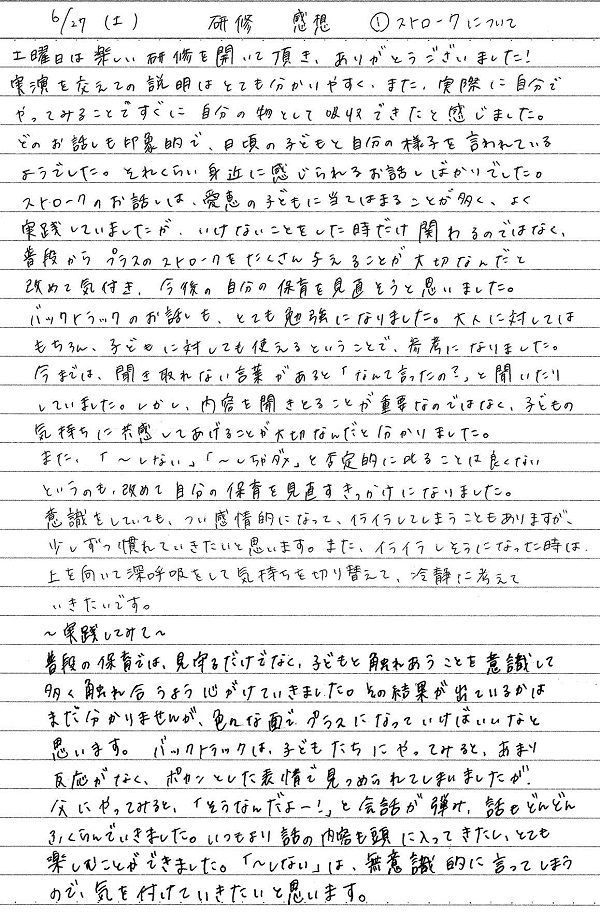 6/27 (土) 研修 感想 ①ストロークについて
土曜日は楽しい研修を開いて頂き、ありがとうございました!
実演を交えての説明はとても分かりやすく、また、実際に自分で
やってみることですぐに自分の物として吸収できたと感じました。
どのお話しも印象的で、日頃の子どもと自分の様子を言われている
ようでした。それくらい身近に感じられるお話しばかりでした。
ストロークのお話しは、愛恵の子どもに当てはまることが多く、よく
実践していましたが、いけないことをした時だけ関わるのではなく、
普段からプラスのストロークをたくさん与えることが大切なんだと
改めて気付き、今後の自分の保育を見直そうと思いました。
バックトラックのお話しも、とても勉強になりました。大人に対しては
もちろん、子どもに対しても使えるということで、参考になりました。
今までは、聞き取れない言葉があると「なんて言ったの?」と聞いたり
していました。しかし、内容を聞きとることが重要なのではなく、子どもの
気持ちに共感してあげることが大切なんだと分かりました。
また、「〜しない」「〜しちゃダメ」と否定的に叱ることは良くない
というのも、改めて自分の保育を見直すきっかけになりました。
意識をしていても、つい感情的になって、イライラしてしまうこともありますが、
少しずつ慣れていきたいと思います。また、イライラしそうになった時は、
上を向いて深呼吸をして気持ちを切り替えて、冷静に考えて
いきたいです。
〜実践してみて〜
普段の保育では、見守るだけでなく、子どもと触れあうことを意識して
多く触れ合うよう心がけていきました。その結果が出ているかは
まだ分かりませんが、色んな面でプラスになっていけばいいなと
思います。バックトラックは、子どもたちにやってみると、あまり
反応がなく、ポカンとした表情で見つめられてしまいましたが、
父にやってみると、「そうなんだよー!」と会話が弾み、話もどんどん
ふくらんでいきました。いつもより話の内容も頭に入ってきたし、とても
楽しむことができました。「〜しない」は、無意識的に言ってしまう
ので、気を付けていきたいと思います。